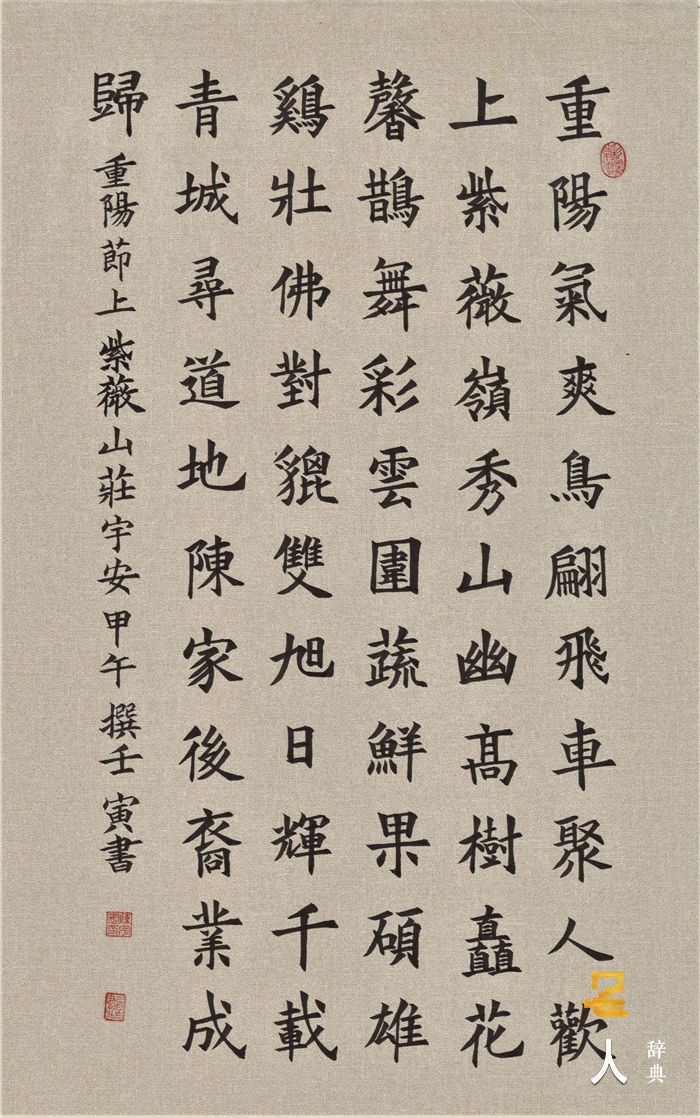 重陽氣爽鳥翩飛車聚人歡
上紫薇嶺秀山幽髙樹矗花
馨鵲舞彩雲圍蔬鮮果碩雄
鷄壯佛對貔雙旭日輝千載
青城尋道地陳家後裔業成
歸
重陽莭上紫薇山莊宇安甲午撰壬寅書
人
辞典